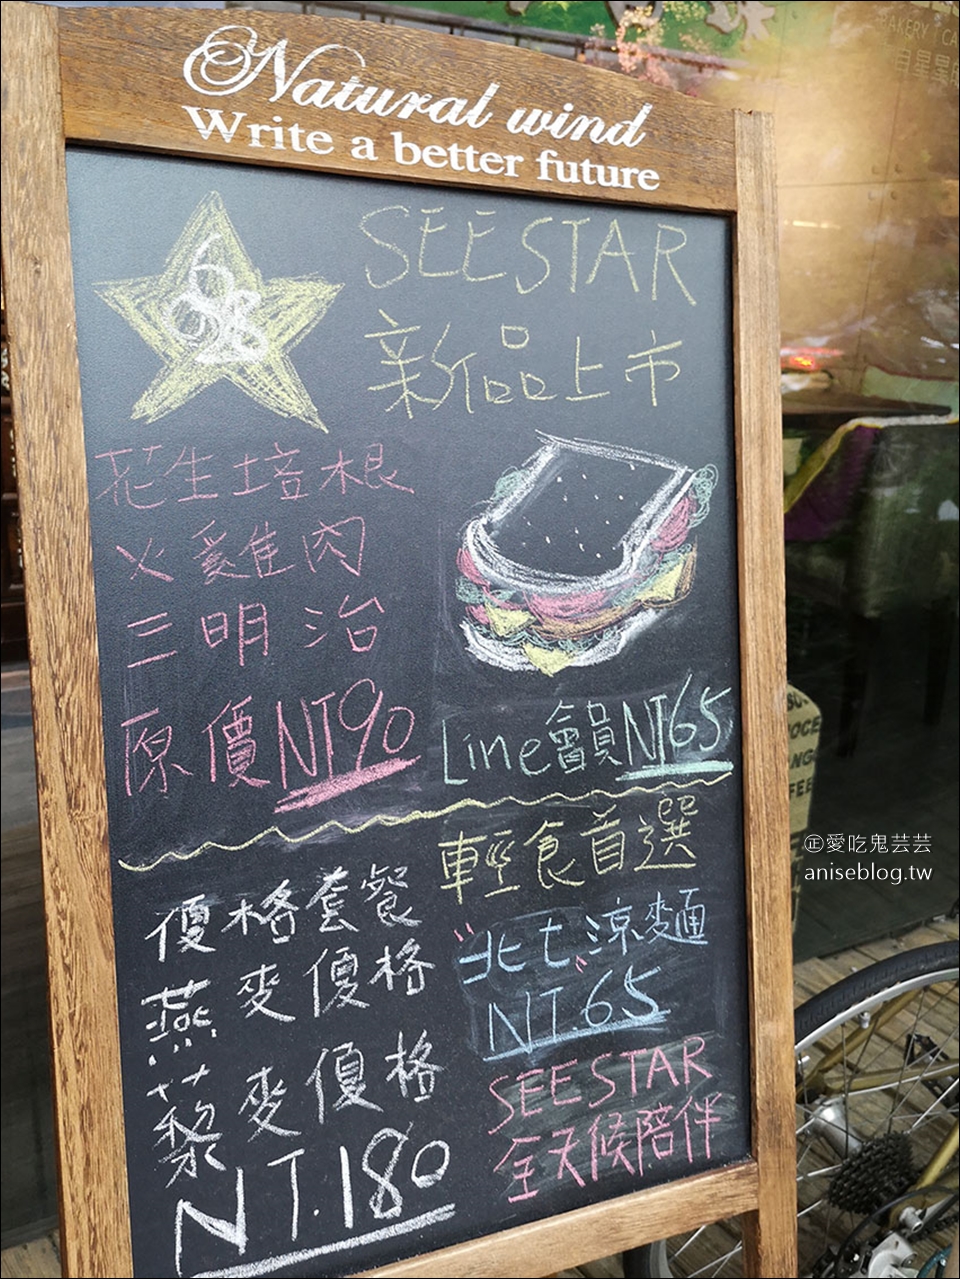 Natural wind
Write a better future
628
SEESTAR
新品上市
花生培根
火雞肉
三明治
原價NT90
Line會員NT65
輕食首選
"北七"涼麵
NT.65
SEESTAR
全天候陪伴
優格套餐
燕麥優格
藜麥優格
NT.180
BAKERY
㊣愛吃鬼芸芸
aniseblog.tw